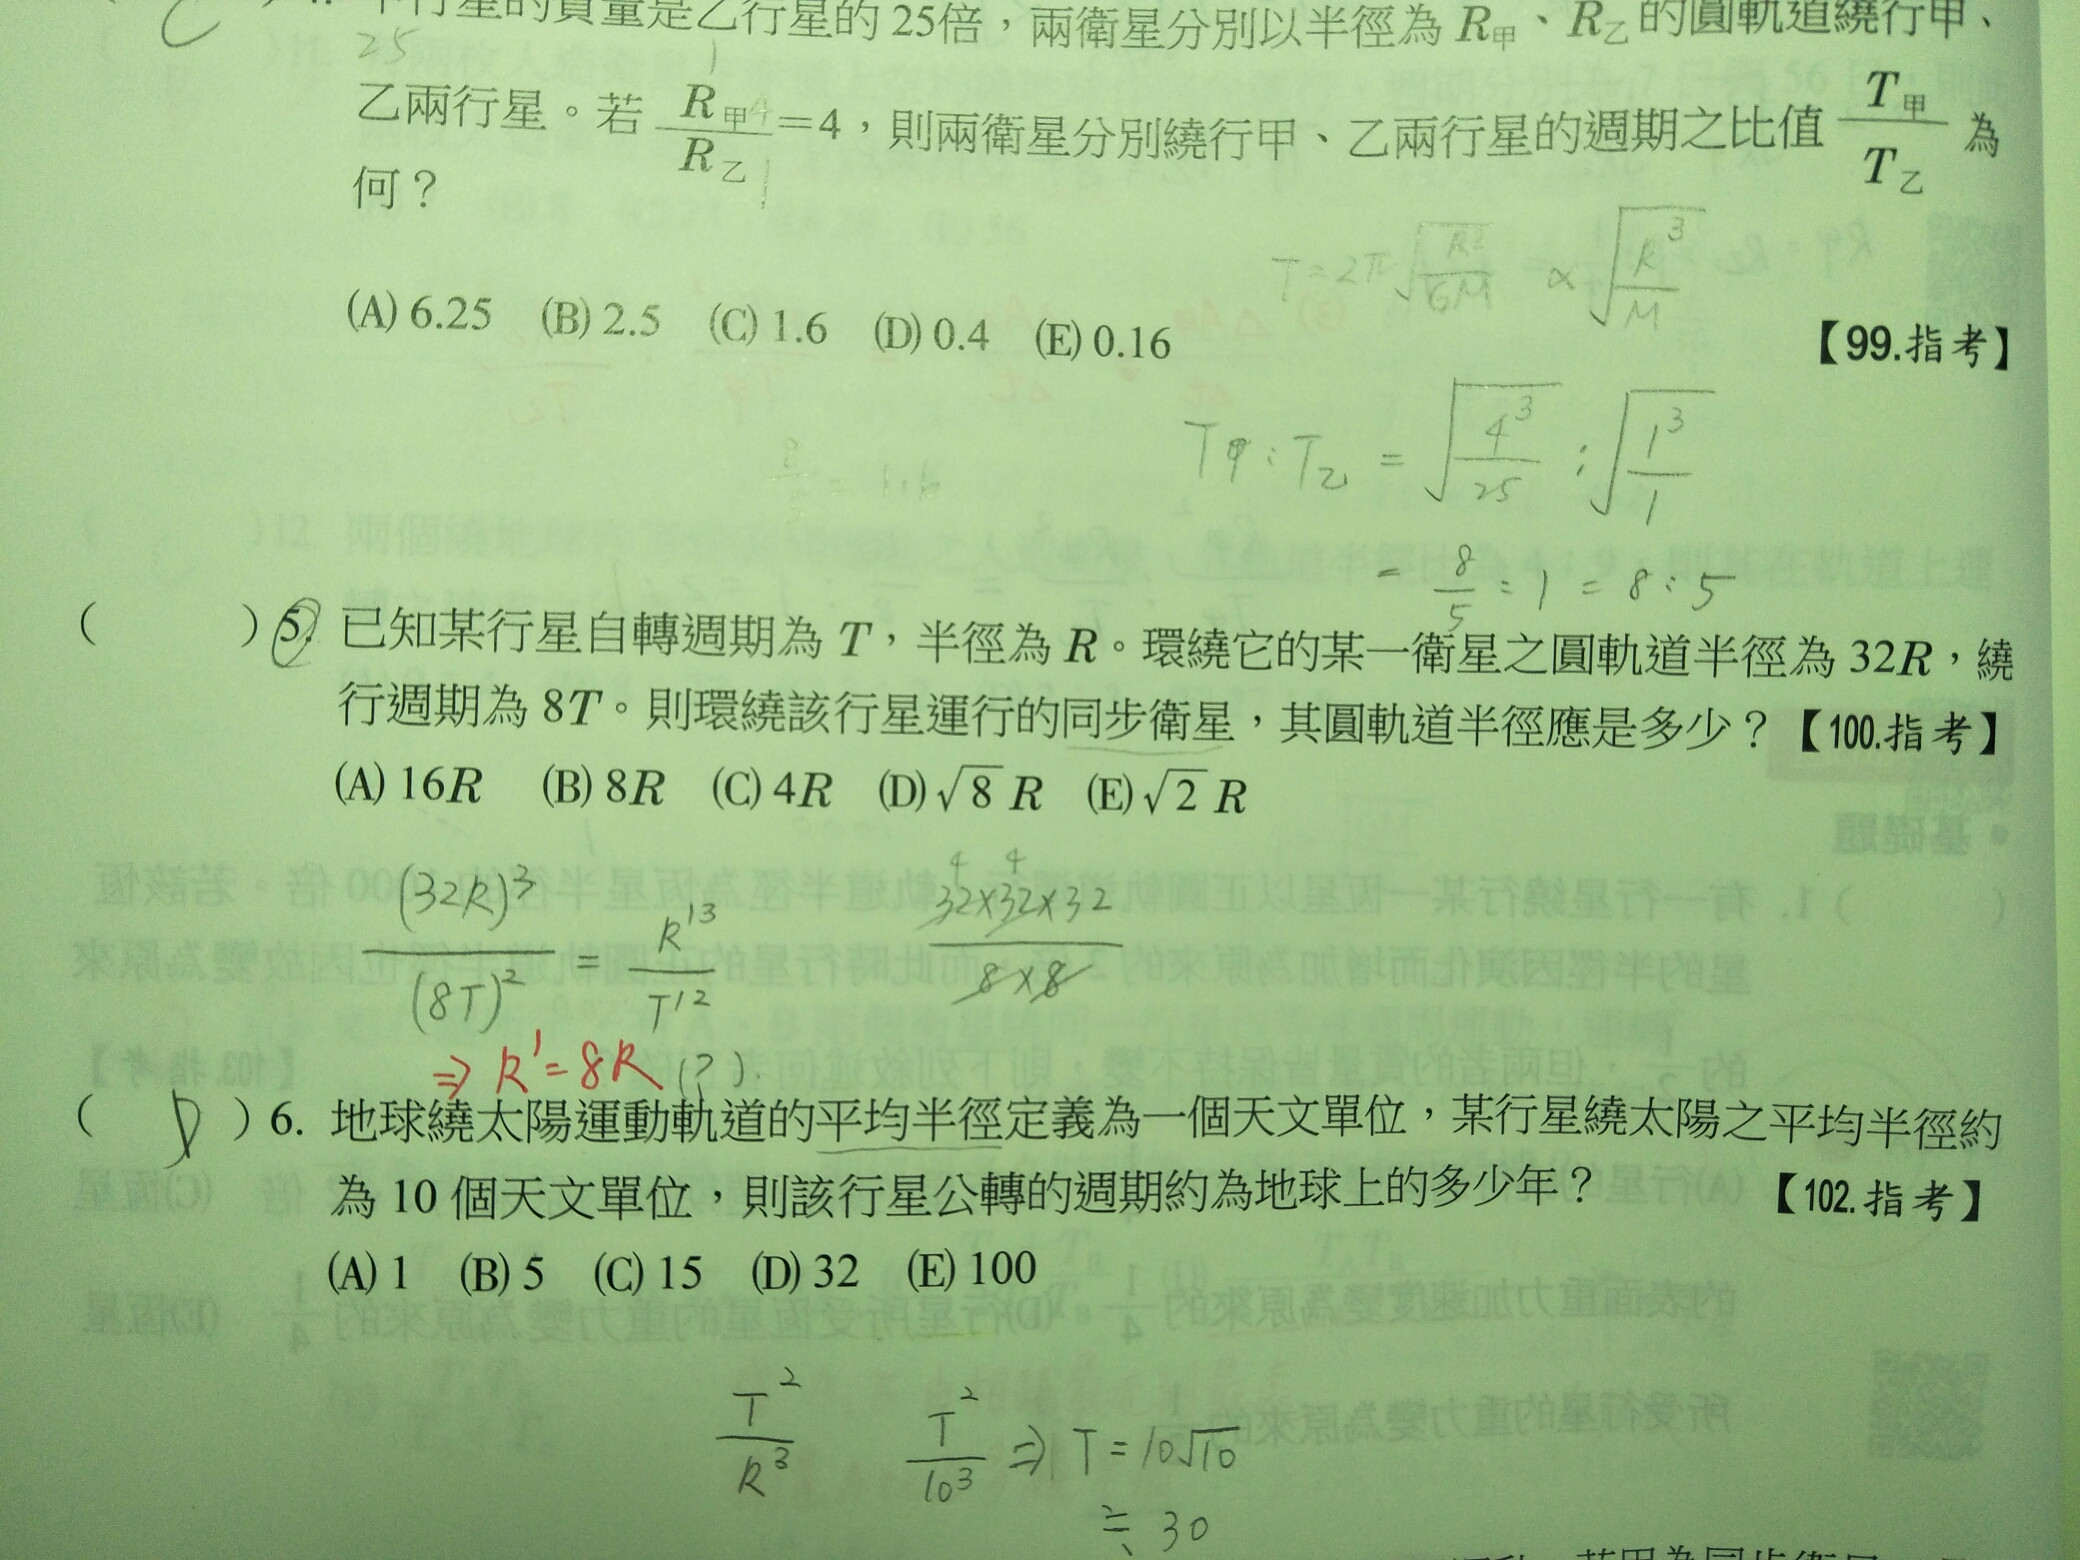 行星的質量是乙行星的 25倍，兩衛星分別以半徑為 R甲、R乙 的圓軌道繞行甲、
25
乙兩行星。若 R甲/R乙 =4，則兩衛星分別繞行甲、乙兩行星的週期之比值 T甲/T乙 為
何？
T=2π√(R³/GM) ∝ √(R³/M)
(A) 6.25 (B) 2.5 (C) 1.6 (D) 0.4 (E) 0.16
【99.指考】
T甲:T乙 = √(4³/25) : √(1³/1)
= 8/5 : 1 = 8 : 5
( ) 5. 已知某行星自轉週期為 T，半徑為 R。環繞它的某一衛星之圓軌道半徑為 32R，繞
行週期為 8T。則環繞該行星運行的同步衛星，其圓軌道半徑應是多少？【100.指考】
(A) 16R (B) 8R (C) 4R (D) √8 R (E) √2 R
(32R)³/(8T)² = R'³/T'²
4 4
32×32×32/8×8
⇒ R'=8R (?).
( D ) 6. 地球繞太陽運動軌道的平均半徑定義為一個天文單位，某行星繞太陽之平均半徑約
為 10 個天文單位，則該行星公轉的週期約為地球上的多少年？ 【102.指考】
(A) 1 (B) 5 (C) 15 (D) 32 (E) 100
T²/R³ T²/10³ ⇒ T=10√10
≒ 30